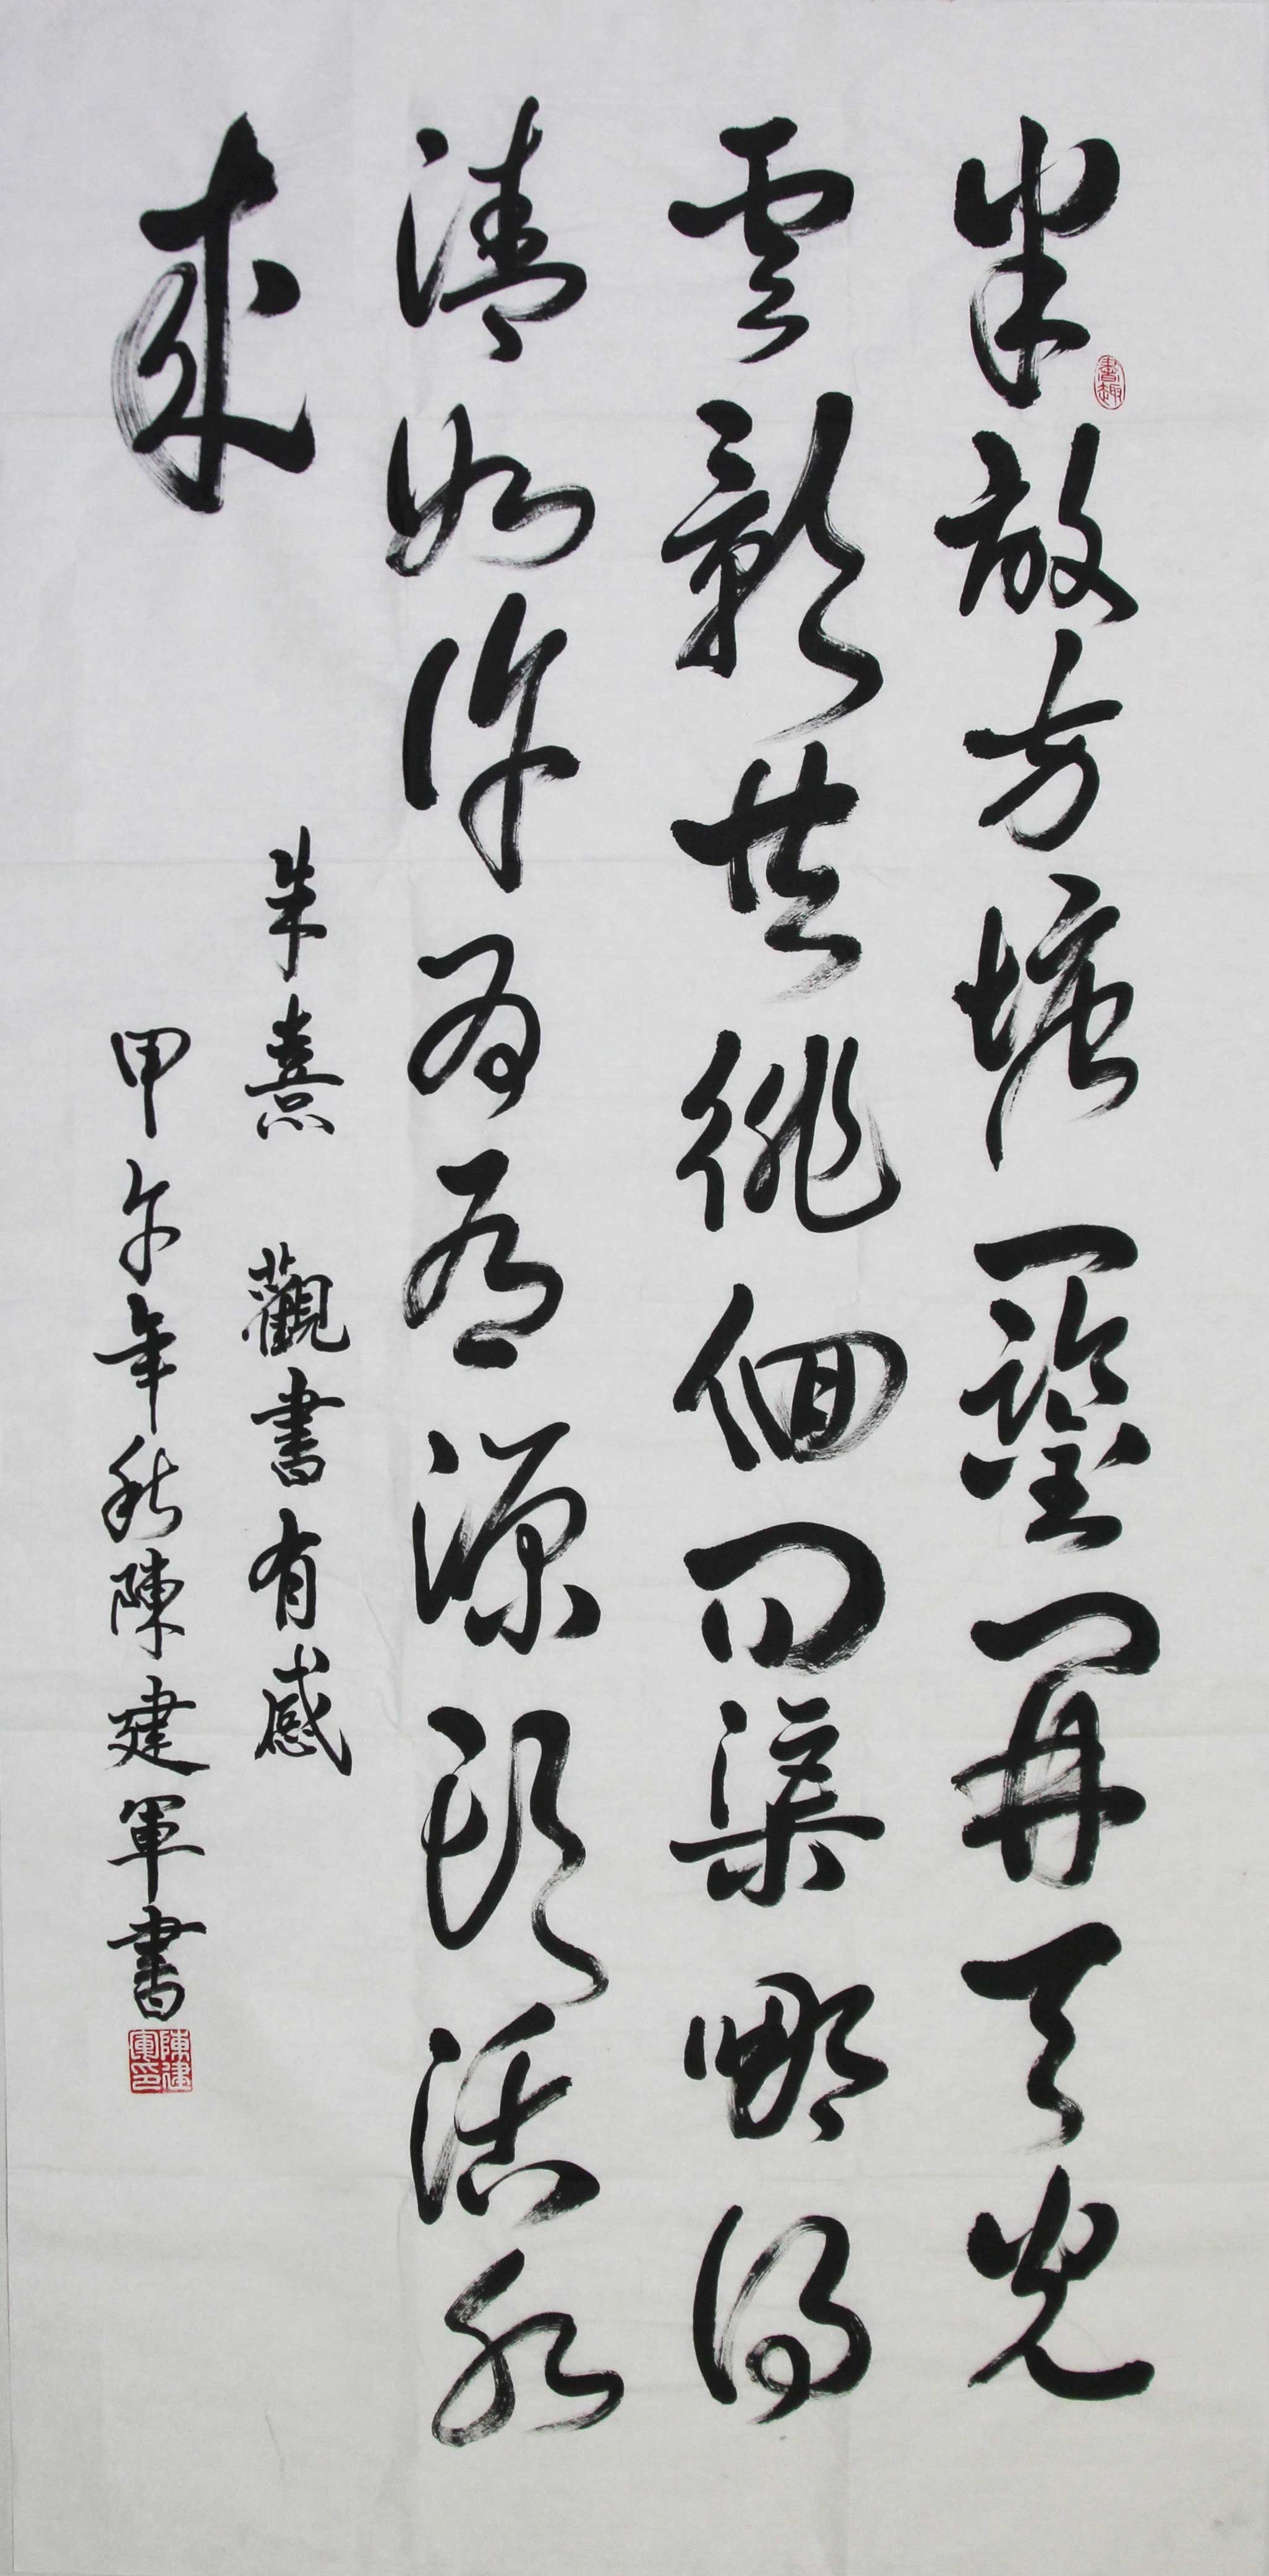 書趣
半畝方塘一鑒開天光
雲影共徘徊問渠哪得
清如許為有源頭活水
來
朱熹 觀書有感
甲午年秋陳建軍書
陳建軍印